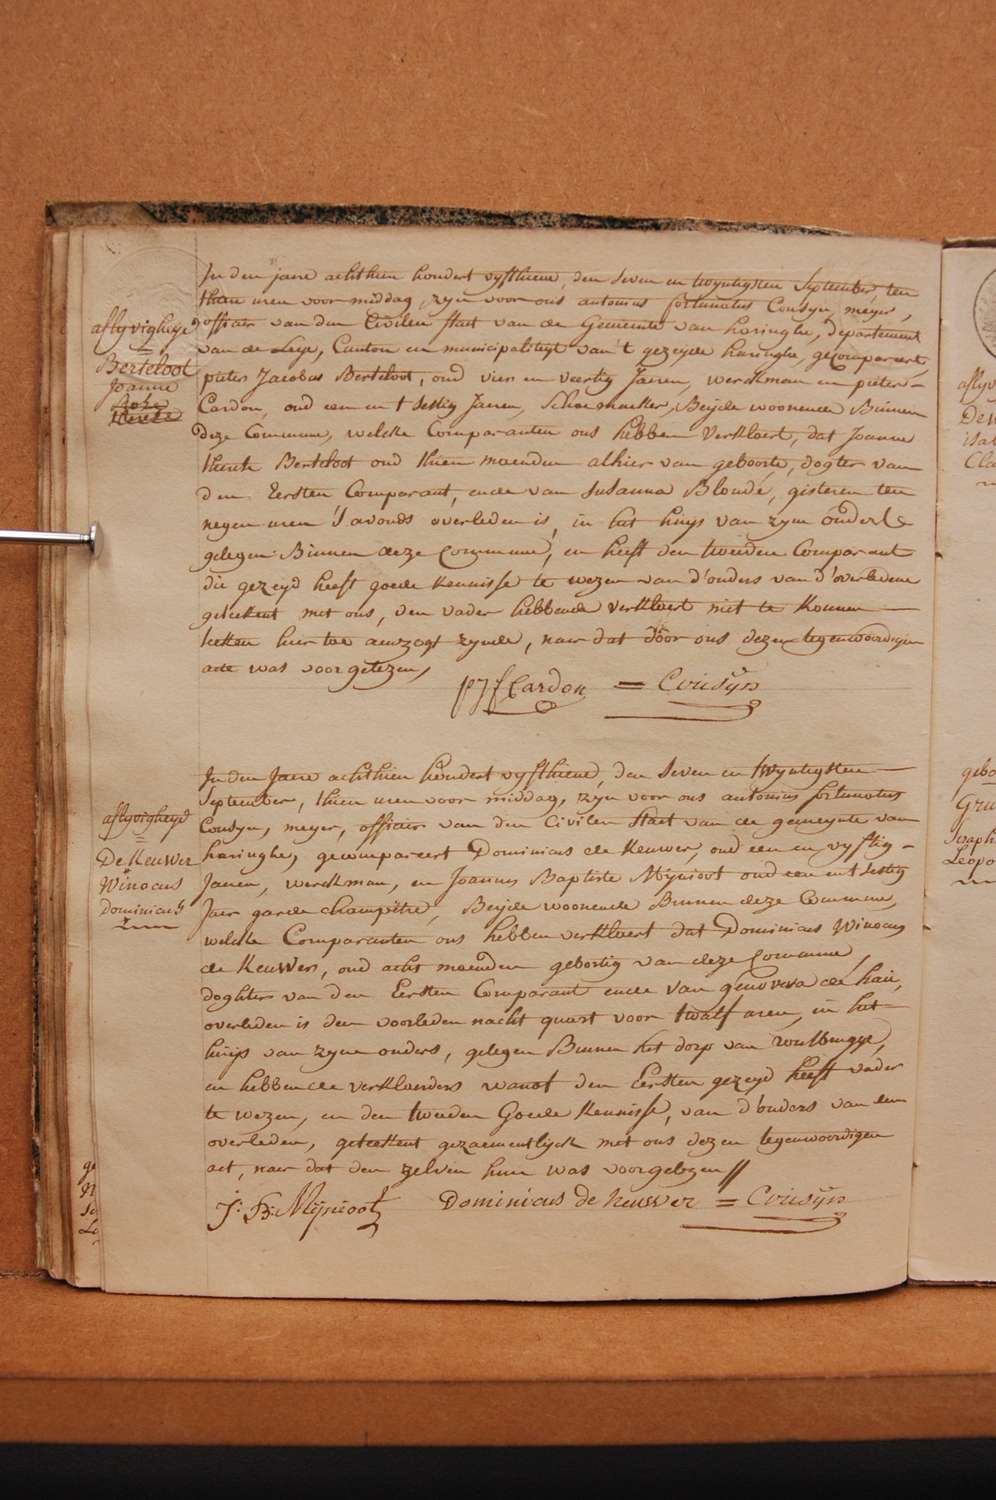 In den jaere achthien hondert vyfthiene, den seven en twyntigsten September ten
thien uren voor middag, zyn voor ons antonius fortunatus Cousyn, meyer,
officier van den Civilen staet van de Gemeente van haringhe, departement
van de Leye, Canton en municipaliteyt van 't gezeyde haringhe, gecompareert,
pieter Jacobus Berteloot, oud vier en veertig Jaeren, werckman en pieter
Cardon, oud een en t'sestig Jaeren, Schoemaeker, Beyde woonende Binnen
deze Commune, welcke Comparanten ons hebben verklaert, dat Joanne
Berteloot oud thien maenden alhier van geboorte, dogter van
den Eersten Comparant, ende van Susanna Blondé, gisteren ten
negen uren 's avonds overleden is, in het huys van zyne ouders
gelegen Binnen deze Commune, en heeft den tweeden Comparant
die gezeyd heeft goede kennisse te wezen van d'ouders van d'overledene
geteekent met ons, den vader hebbende verklaert niet te konnen
hier toe aenzogt zynde, naer dat door ons dezen tegenwoordigen
acte was voorgelezen,
Cardon = Cousÿn
aflyvigheyd
Berteloot
Joanne
In den Jaere achthien hondert vyfthiene, den seven en twyntigsten
September, thien uren voor middag, zyn voor ons antonius fortunatus
Cousyn, meyer, officier van den Civilen staet van de gemeynte van
haringhe, gecompareert Dominicus de Keuwer, oud een en vyftig
Jaeren, werckman, en Joannes Baptiste Mÿnioot oud een en t'sestig
Jaer garde champêtre, Beyde woonende Binnen deze Commune,
welcke Comparanten ons hebben verklaert dat Dominicus Winocus
de Keuwer, oud acht maenden gebortig van deze Commune,
doghter van den Eersten Comparant ende van genoveva de hair,
overleden is den voorleden nacht quart voor twalf uren, in het
huys van zyne ouders, gelegen Binnen het dorp van
en hebben de verklaerders den Eersten gezeyd heeft vader
te wezen, en den tweeden Goede kennisse, van d'ouders van den
overleden, geteekent gezaementlyck met ons dezen tegenwoordigen
act, naer dat den zelven hun was voorgelezen //
J: B: Mÿnioot Dominicus de keuwer = Cousÿn
aflyvigheyd
De Keuwer
Winocus
Dominicus